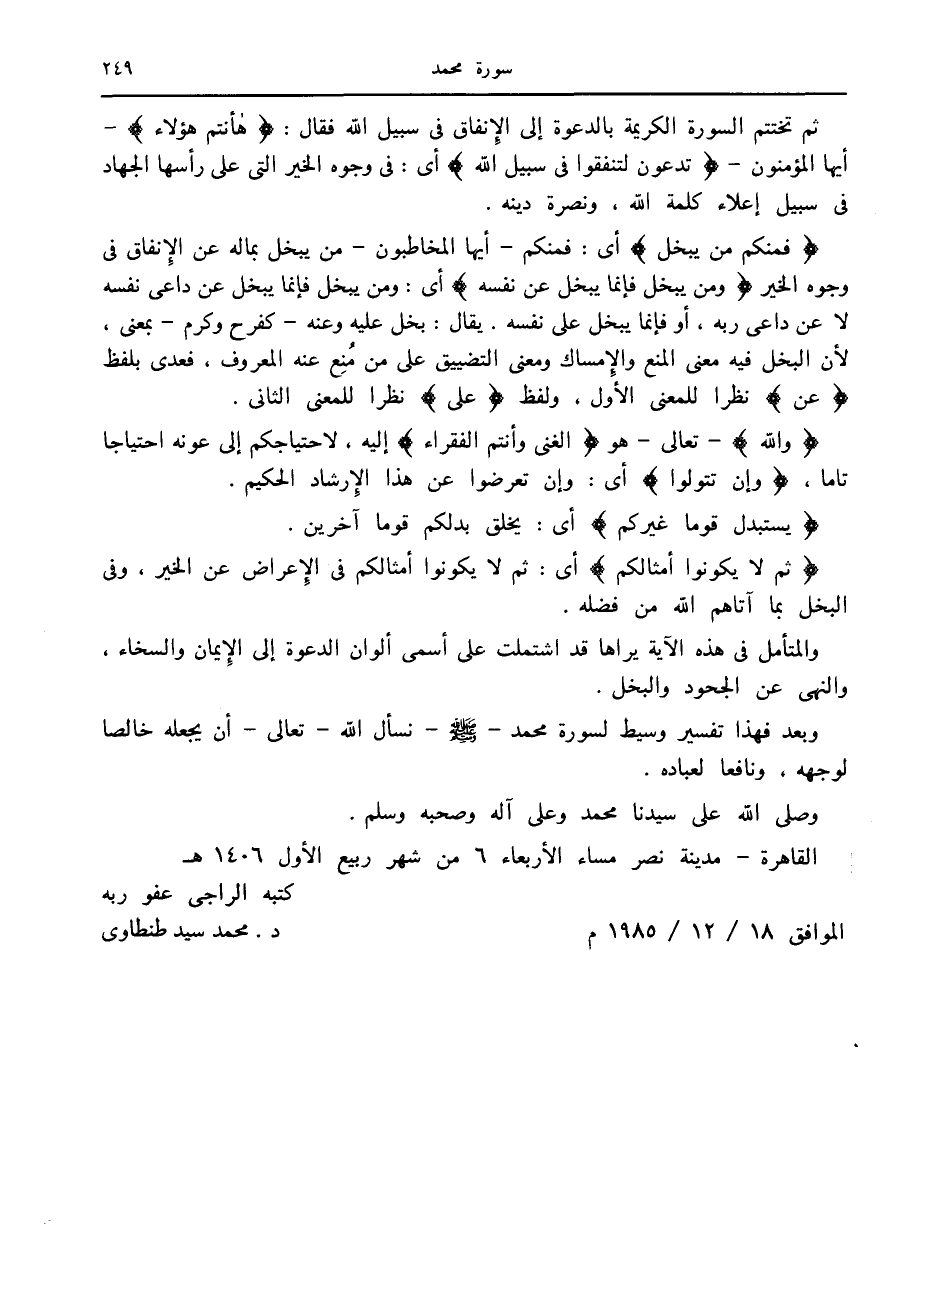 سورة محمد ٢٤٩
ثم تختتم السورة الكريمة بالدعوة إلى الإنفاق فى سبيل الله فقال : ﴿ هٰأنتم هؤلاء ﴾ –
أيها المؤمنون – ﴿ تدعون لتنفقوا فى سبيل الله ﴾ أى : فى وجوه الخير التى على رأسها الجهاد
فى سبيل إعلاء كلمة الله ، ونصرة دينه .
﴿ فمنكم من يبخل ﴾ أى : فمنكم – أيها المخاطبون – من يبخل بماله عن الإنفاق فى
وجوه الخير ﴿ ومن يبخل فإنما يبخل عن نفسه ﴾ أى : ومن يبخل فإنما يبخل عن داعى نفسه
لا عن داعى ربه ، أو فإنما يبخل على نفسه . يقال : بخل عليه وعنه – كفرح وكرم – بمعنى ،
لأن البخل فيه معنى المنع والإمساك ومعنى التضييق على من مُنِع عنه المعروف ، فعدى بلفظ
﴿ عن ﴾ نظرا للمعنى الأول ، ولفظ ﴿ على ﴾ نظرا للمعنى الثانى .
﴿ والله ﴾ – تعالى – هو ﴿ الغنى وأنتم الفقراء ﴾ إليه ، لاحتياجكم إلى عونه احتياجا
تاما ، ﴿ وإن تتولوا ﴾ أى : وإن تعرضوا عن هذا الإرشاد الحكيم .
﴿ يستبدل قوما غيركم ﴾ أى : يخلق بدلكم قوما آخرين .
﴿ ثم لا يكونوا أمثالكم ﴾ أى : ثم لا يكونوا أمثالكم فى الإعراض عن الخير ، وفى
البخل بما آتاهم الله من فضله .
والمتأمل فى هذه الآية يراها قد اشتملت على أسمى ألوان الدعوة إلى الإيمان والسخاء ،
والنهى عن الجحود والبخل .
وبعد فهذا تفسير وسيط لسورة محمد – ﷺ – نسأل الله – تعالى – أن يجعله خالصا
لوجهه ، ونافعا لعباده .
وصلى الله على سيدنا محمد وعلى آله وصحبه وسلم .
القاهرة – مدينة نصر مساء الأربعاء ٦ من شهر ربيع الأول ١٤٠٦ هـ
كتبه الراجى عفو ربه
الموافق ١٨ / ١٢ / ١٩٨٥ م د . محمد سيد طنطاوى